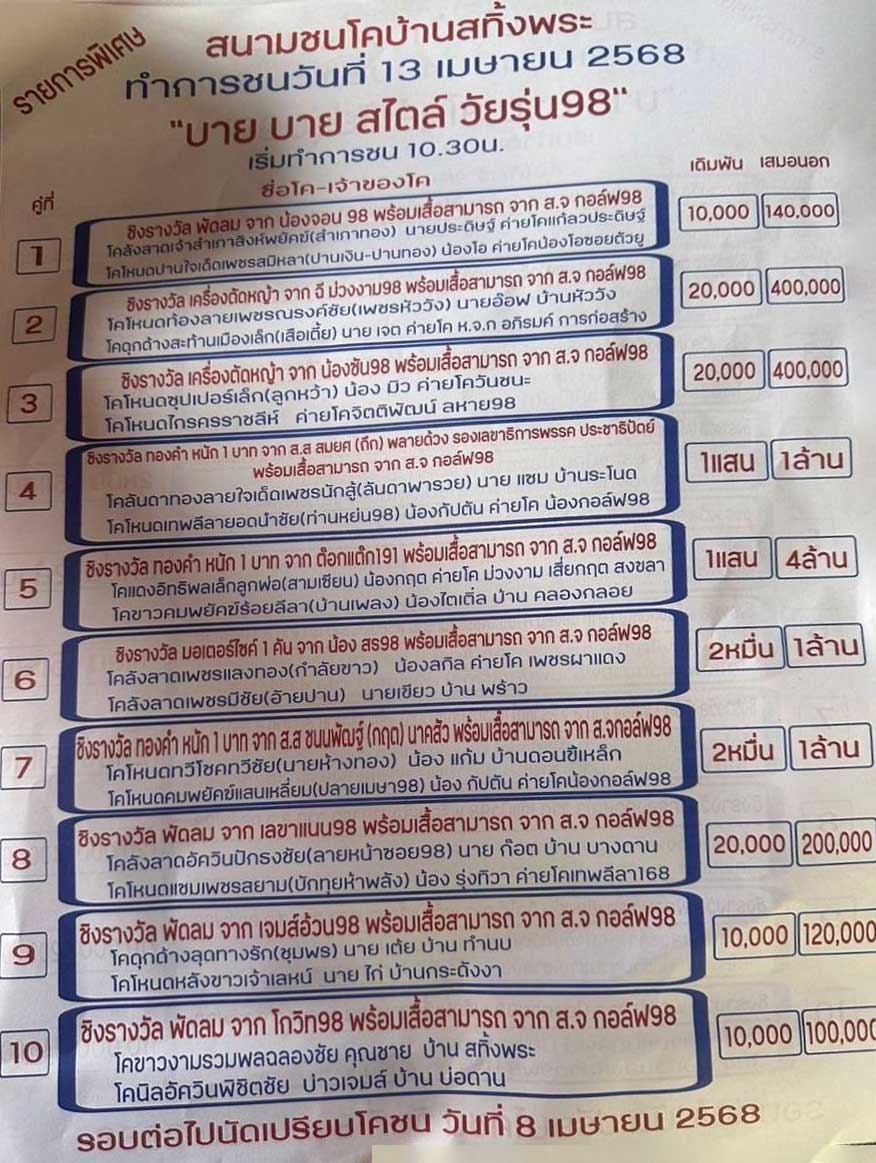 รายการพิเศษ
สนามชนโคบ้านสทิ้งพระ
ทำการชนวันที่ 13 เมษายน 2568
"บาย บาย สไตล์ วัยรุ่น98"
เริ่มทำการชน 10.30น.
คู่ที่ ชื่อโค-เจ้าของโค เดิมพัน เสมอนอก
1 ชิงรางวัล พัดลม จาก น้องจอน 98 พร้อมเสื้อสามารถ จาก ส.จ กอล์ฟ98 10,000 140,000
โคลังสาดเจ้าสำเภาสิงห์พยัคฆ์(สำเภาทอง) นายประดิษฐ์ ค่ายโคแก้ลวประดิษฐ์
โคโหนดปานใจเด็ดเพชรสมิหลา(ปานเงิน-ปานทอง) น้องโอ ค่ายโคน้องโอซอยตัวยู
2 ชิงรางวัล เครื่องตัดหญ้า จาก ฉี ม่วงงาม98 พร้อมเสื้อสามารถ จาก ส.จ กอล์ฟ98 20,000 400,000
โคโหนดท้องลายเพชรณรงค์ชัย(เพชรหัววัง) นายอ๊อฟ บ้านหัววัง
โคดุกด้างสะท้านเมืองเล็ก(เสือเตี้ย) นาย เจต ค่ายโค ห.จ.ก อภิรมค์ การก่อสร้าง
3 ชิงรางวัล เครื่องตัดหญ้า จาก น้องซัน98 พร้อมเสื้อสามารถ จาก ส.จ กอล์ฟ98 20,000 400,000
โคโหนดซุปเปอร์เล็ก(ลูกหว้า) น้อง มิว ค่ายโควันชนะ
โคโหนดไกรครราชลีห์ ค่ายโคจิตติพัฒน์ ลหาย98
4 ชิงรางวัล ทองคำ หนัก 1 บาท จาก ส.ส สมยศ (ถึก) พลายด้วง รองเลขาธิการพรรค ประชาธิปัตย์ 1แสน 1ล้าน
พร้อมเสื้อสามารถ จาก ส.จ กอล์ฟ98
โคลันดาทองลายใจเด็ดเพชรนักสู้(ลันดาพารวย) นาย แซม บ้านระโนด
โคโหนดเทพลีลายอดนำชัย(ท่านหย่น98) น้องกัปตัน ค่ายโค น้องกอล์ฟ98
5 ชิงรางวัล ทองคำ หนัก 1 บาท จาก ต๊อกแต๊ก191 พร้อมเสื้อสามารถ จาก ส.จ กอล์ฟ98 1แสน 4ล้าน
โคแดงอิทธิพลเล็กลูกพ่อ(สามเซียน) น้องกฤต ค่ายโค ม่วงงาม เสี่ยกฤต สงขลา
โคขาวคมพยัคฆ์ร้อยลีลา(บ้านเพลง) น้องไตเติ่ล บ้าน คลองกลอย
6 ชิงรางวัล มอเตอร์ไซค์ 1 คัน จาก น้อง สร98 พร้อมเสื้อสามารถ จาก ส.จ กอล์ฟ98 2หมื่น 1ล้าน
โคลังลาดเพชรแสงทอง(กำลัยขาว) น้องลกิล ค่ายโค เพชรผาแดง
โคลังลาดเพชรมีชัย(อ้ายปาน) นายเขียว บ้าน พร้าว
7 ชิงรางวัล ทองคำ หนัก 1 บาท จาก ส.ส ชนนพัฒฐ์ (กฤต) นาคสั้ว พร้อมเสื้อสามารถ จาก ส.จกอล์ฟ98 2หมื่น 1ล้าน
โคโหนดทวีโชคทวีชัย(นายห้างทอง) น้อง แก้ม บ้านดอนขี้เหล็ก
โคโหนดคมพยัคฆ์แสนเหลี่ยม(ปลายเมษา98) น้อง กัปตัน ค่ายโคน้องกอล์ฟ98
8 ชิงรางวัล พัดลม จาก เลขาแนน98 พร้อมเสื้อสามารถ จาก ส.จ กอล์ฟ98 20,000 200,000
โคลังลาดอัศวินปักธงชัย(ลายหน้าซอย98) นาย ก๊อต บ้าน บางดาน
โคโหนดแซมเพชรสยาม(บักทุยห้าพลัง) น้อง รุ่งทิวา ค่ายโคเทพลีลา168
9 ชิงรางวัล พัดลม จาก เจมส์อ้วน98 พร้อมเสื้อสามารถ จาก ส.จ กอล์ฟ98 10,000 120,000
โคดุกด้างสุดทางรัก(ชุมพร) นาย เต้ย บ้าน ทำนบ
โคโหนดหลังขาวเจ้าเลหน์ นาย ไก่ บ้านกระดังงา
10 ชิงรางวัล พัดลม จาก โกวิท98 พร้อมเสื้อสามารถ จาก ส.จ กอล์ฟ98 10,000 100,000
โคขาวงามรวมพลฉลองชัย คุณชาย บ้าน สทิ้งพระ
โคนิลอัศวินพิชิตชัย บ่าวเจมส์ บ้าน บ่อด่าน
รอบต่อไปนัดเปรียบโคชน วันที่ 8 เมษายน 2568